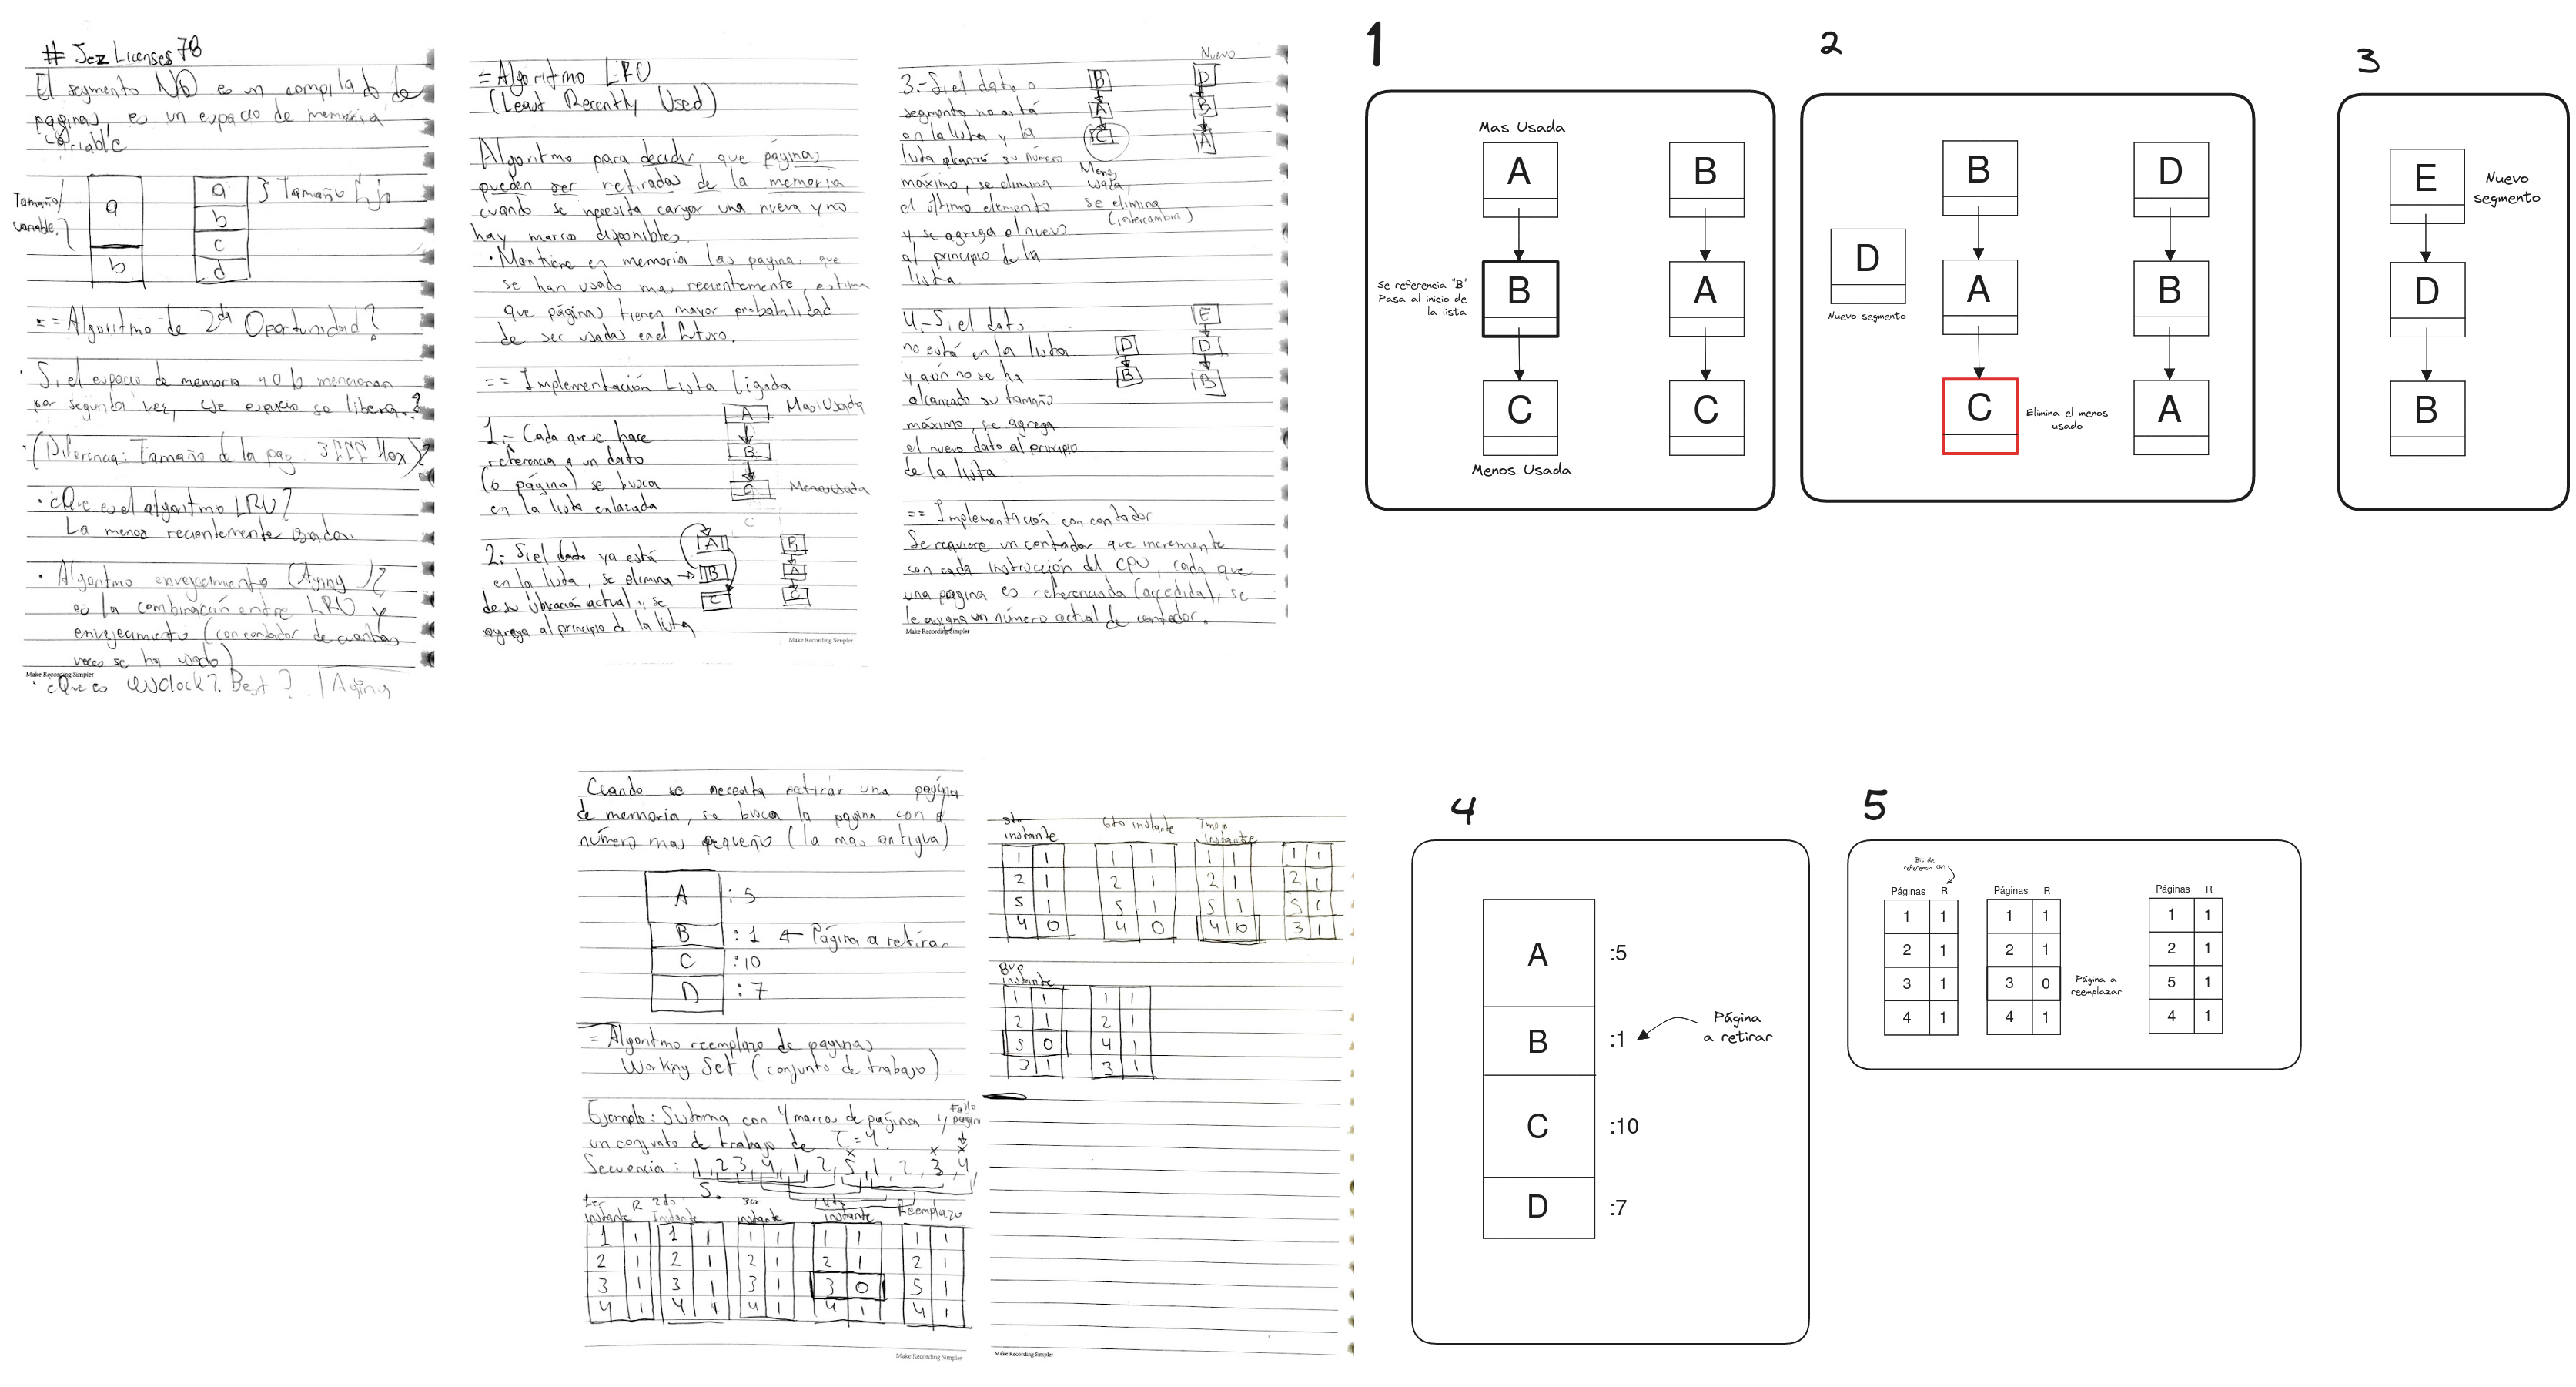 # Jez Licenses 78
El segmento NO es un compilado de
páginas, es un espacio de memoria
variable
Tamaño
variable
a
b
a
b
c
d
} Tamaño fijo
== Algoritmo de 2da Oportunidad?
· Si el espacio de memoria no lo mencionan
por segunda vez, ese espacio se libera.?
· (Diferencia: Tamaño de la pag.
· ¿Que es el algoritmo LRU?
La menos recientemente usada.
· Algoritmo envejecimiento (Aging)?
es la combinación entre LRU y
envejecimiento (con contador de cuantas
veces se ha usado)
Make Recording Simpler
· ¿Que es WSClock?. Best? Aging
= Algoritmo LRU
(Least Recently Used)
Algoritmo para decidir que páginas
pueden ser retiradas de la memoria
cuando se necesita cargar una nueva y no
hay marcos disponibles.
· Mantiene en memoria las paginas que
se han usado mas recientemente, estima
que páginas tienen mayor probabilidad
de ser usadas en el futuro.
== Implementación Lista Ligada
1.- Cada que se hace
referencia a un dato
(o página) se busca
en la lista enlazada
A Mas Usada
B
C Menos usada
2.- Si el dato ya está
en la lista, se elimina →
de su ubicación actual y se
agrega al principio de la lista
A
B
C
B
A
C
Make Recording Simpler
3.- Si el dato o
segmento no está
en la lista y la
lista alcanzó su número
máximo, se elimina
el último elemento
y se agrega el nuevo
al principio de la
lista.
B
A
C
Menos
usada,
se elimina
(intercambia)
Nuevo
D
B
A
4.- Si el dato
no está en la lista
y aún no se ha
alcanzado su tamaño
máximo, se agrega
el nuevo dato al principio
de la lista
D
B
E
D
B
== Implementación con contador
Se requiere un contador que incremente
con cada instrucción del CPU, cada que
una pagina es referenciada (accedida), se
le asigna un número actual de contador.
Make Recording Simpler
1
Mas Usada
A
B
C
Menos Usada
Se referencia "B"
Pasa al inicio de
la lista
B
A
C
2
D
Nuevo segmento
B
A
C
Elimina el menos
usado
D
B
A
3
E
D
B
Nuevo
segmento
Cuando se necesita retirar una página
de memoria, se busca la pagina con el
número mas pequeño (la mas antigua)
A : 5
B : 1 ← Página a retirar
C : 10
D : 7
= Algoritmo reemplazo de paginas
Working Set (conjunto de trabajo)
Ejemplo: Sistema con 4 marcos de página y
un conjunto de trabajo de T=4.
Fallo
página
Secuencia: 1, 2, 3, 4, 1, 2, 5, 1, 2, 3, 4
1er instante R
1 1
2 1
3 1
4 1
2do Instante
1 1
2 1
3 1
4 1
3er instante
1 1
2 1
3 1
4 1
4to instante
1 1
2 1
3 0
4 1
Reemplazo
1 1
2 1
5 1
4 1
Make Recording Simpler
5to
instante
1 1
2 1
5 1
4 0
6to instante
1 1
2 1
5 1
4 0
7mo
instante
1 1
2 1
5 1
4 0
1 1
2 1
5 1
3 1
8vo
instante
1 1
2 1
5 0
3 1
1 1
2 1
4 1
3 1
Make Recording Simpler
4
A :5
B :1
C :10
D :7
Página
a retirar
5
Bit de
referencia (R)
Páginas R
1 1
2 1
3 1
4 1
Páginas R
1 1
2 1
3 0
4 1
Página a
reemplazar
Páginas R
1 1
2 1
5 1
4 1